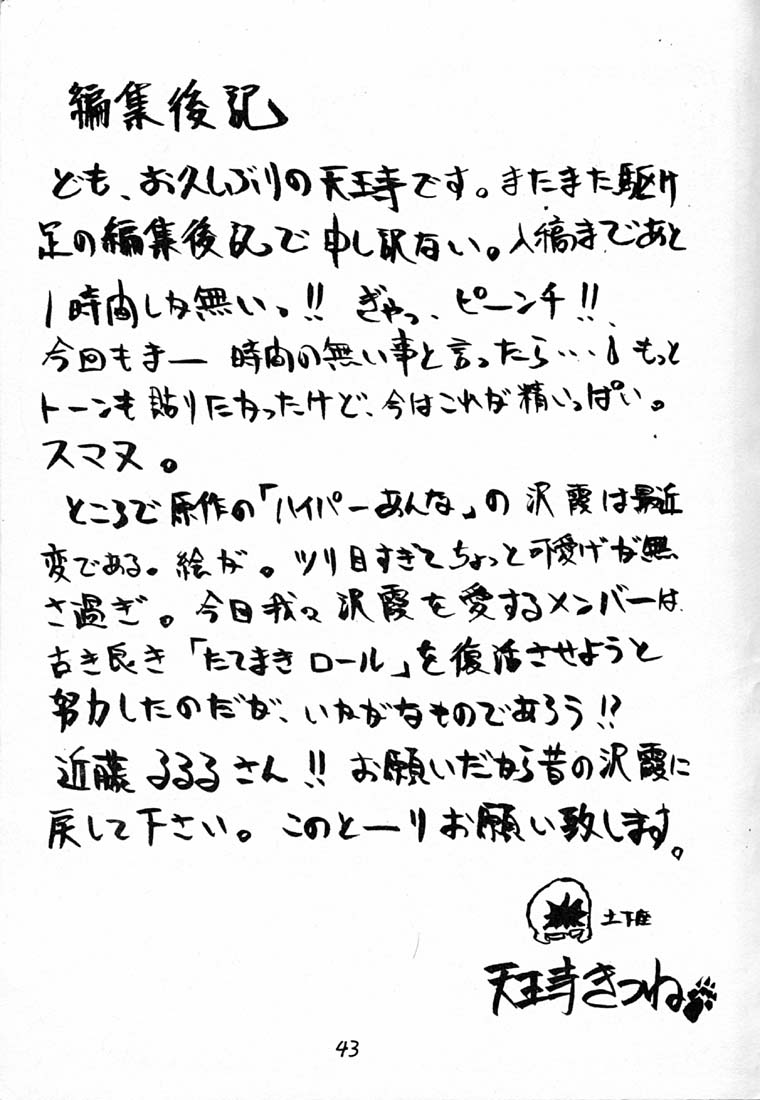 編集後記
ども、お久しぶりの天王寺です。またまた駆け
足の編集後記で申し訳ない。入稿まであと
1時間しか無いっ!! ぎゃっ、ピーンチ!!
今回もまー 時間の無い事と言ったら…! もっと
トーンも貼りたかったけど、今はこれが精いっぱい。
スマヌ。
ところで原作の「ハイパーあんな」の沢霞は最近
変である。絵が。ツリ目すぎてちょっと可愛げが無
さ過ぎ。今日我々沢霞を愛するメンバーは
古き良き「たてまきロール」を復活させようと
努力したのだが、いかがなものであろう!?
近藤るるるさん!! お願いだから昔の沢霞に
戻して下さい。このとーりお願い致します。
土下座
天王寺きつね
43